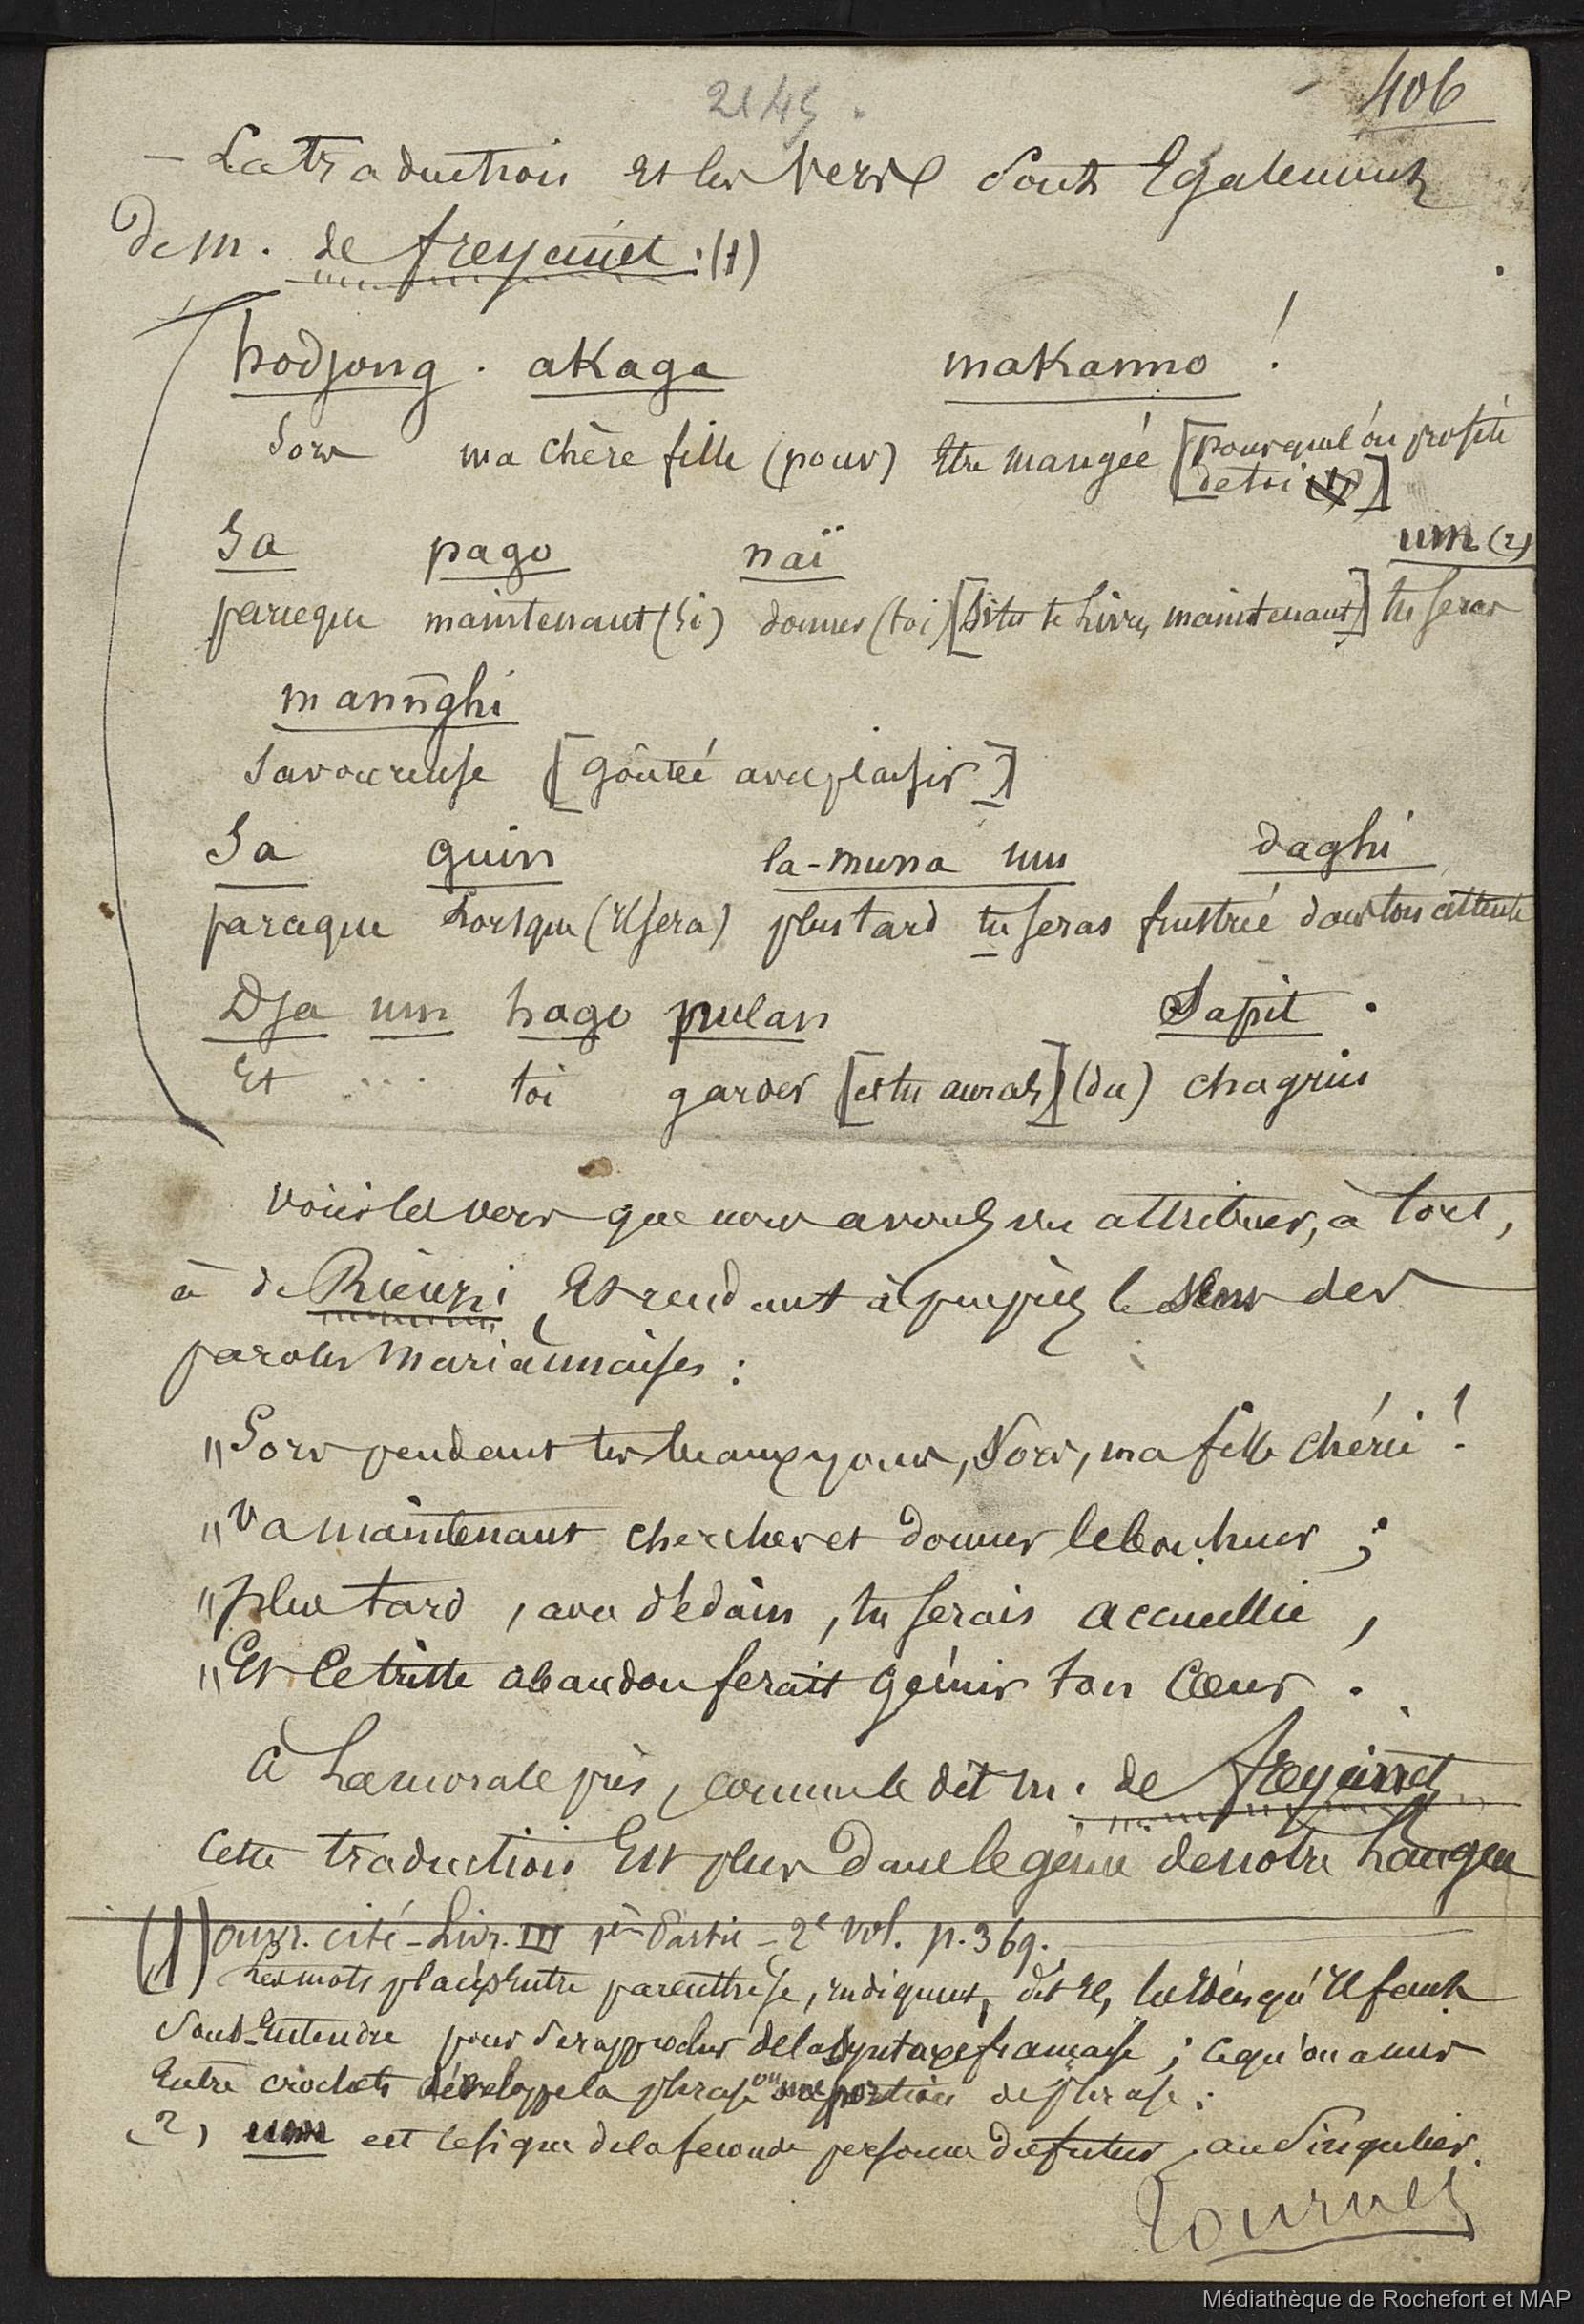 406
2145.
– La traduction et les vers sont Egalement
de M. de freycinet : (1)
hodjong. akaga makanno !
Sors ma chère fille (pour) Etre mangée [pour que l'on profite
de toi]
Sa pago naï um (2)
parceque maintenant (si) donner (toi) [si tu te livres maintenant] tu seras
mannghi
Savoureuse [goûtée avec plaisir]
Sa guin la-muna um daghi
parceque Lorsque (il sera) plus tard tu seras frustrée dans ton attente
Dja um hago pulan Sapit.
Et ... toi garder [et tu auras] (du) chagrin
voici les vers que nous avons vu attribuer, à tort,
à de Rienzi, Et rendant à peu près le sens des
paroles mariannaises :
"Sors pendant tes beaux jours, Sors, ma fille chérie !
"Va maintenant chercher et donner le bonheur ;
"plus tard, avec dédain, tu serais accueillie,
"Et le triste abandon ferait gémir ton Cœur.
à La morale près, comme le dit M. de freycinet
Cette traduction Est plus dans le génie de notre Langue
(1) ouvr. cité – Livr. III 1ère Partie – 2e vol. p. 369.
Les mots placés Entre parenthèse, indiquent, dit il, qu'Il faut
Sous-Entendre pour se rapprocher de la Syntaxe française ; ce qu'on a mis
Entre crochets développe la phrase ou une portion de phrase.
(2) um est le signe de la seconde personne du futur, au Singulier.
Tournes
Médiathèque de Rochefort et MAP